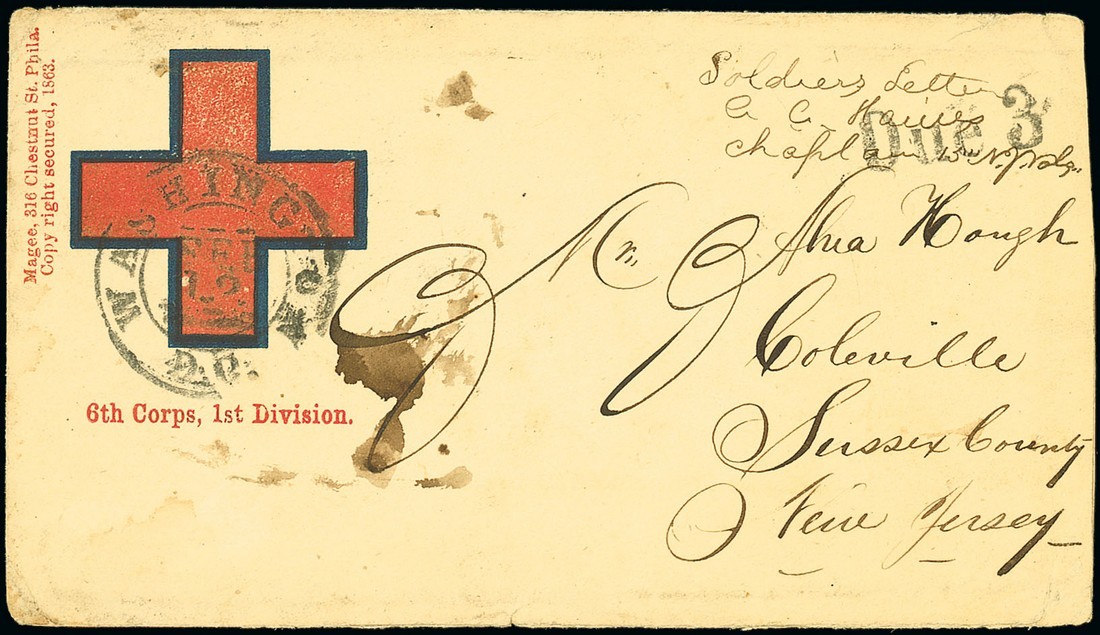 Magee, 316 Chestnut St. Phila.
Copy right secured, 1863.
WASHINGTON
FEB
D.C.
6th Corps, 1st Division.
Soldiers Letter
A. A. Haines
Chaplain 15th N.J. Vols.
Due 3
Mr. Alva Hough
Coleville
Sussex County
New Jersey